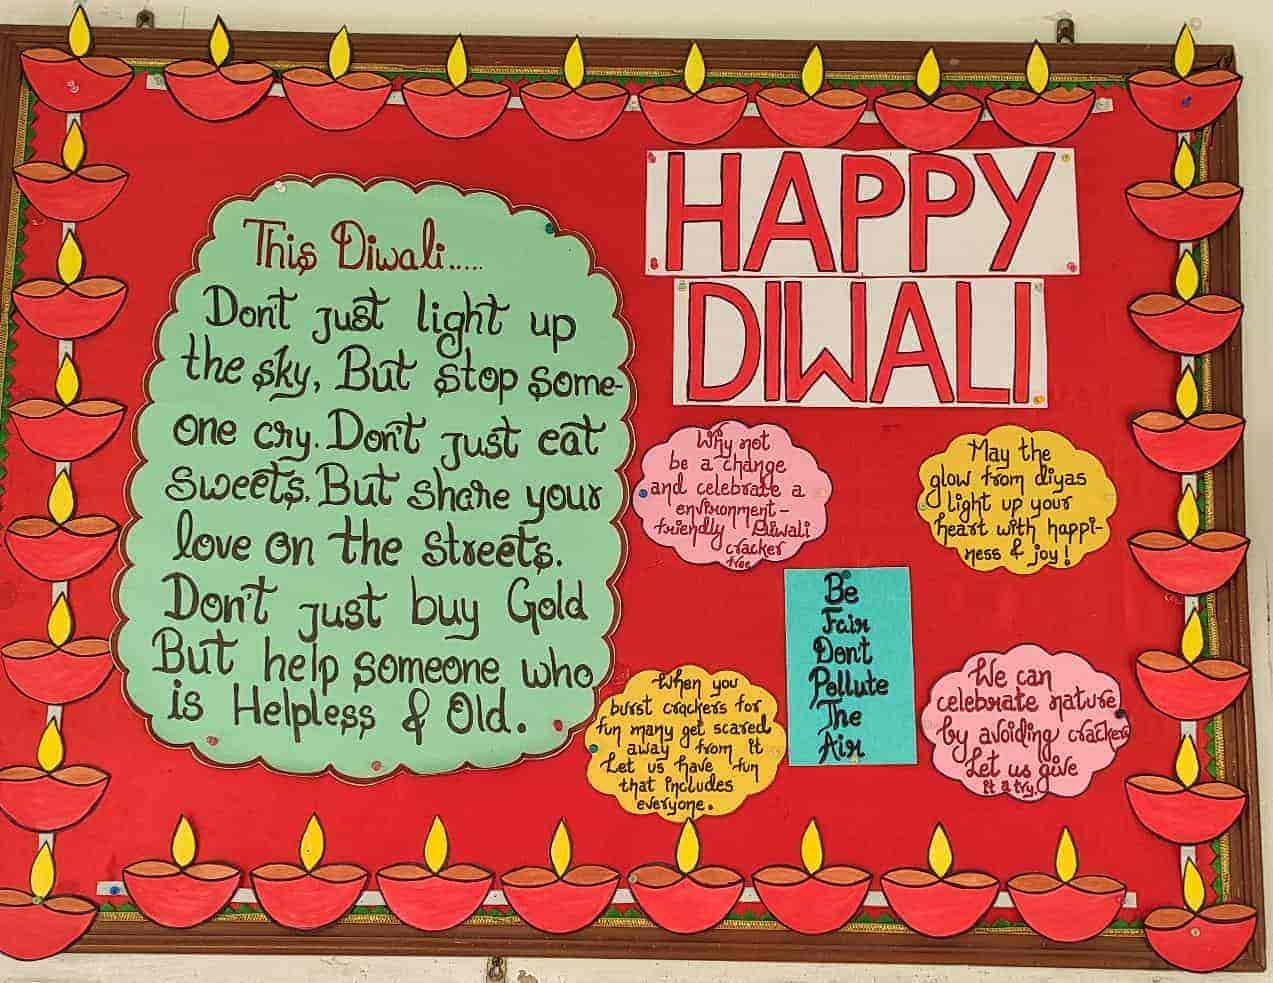 This Diwali.....
Don't just light up
the sky, But stop some-
one cry. Don't just eat
sweets. But share your
love on the streets.
Don't just buy Gold
But help someone who
is Helpless & Old.
HAPPY
DIWALI
Why not
be a change
and celebrate a
environment-
friendly Diwali
cracker
free
May the
glow from diyas
light up your
heart with happi-
ness & joy!
Be
Fair
Don't
Pollute
The
Air
When you
burst crackers for
fun many get scared
away from it
Let us have fun
that includes
everyone.
We can
celebrate nature
by avoiding crackers
Let us give
it a try.